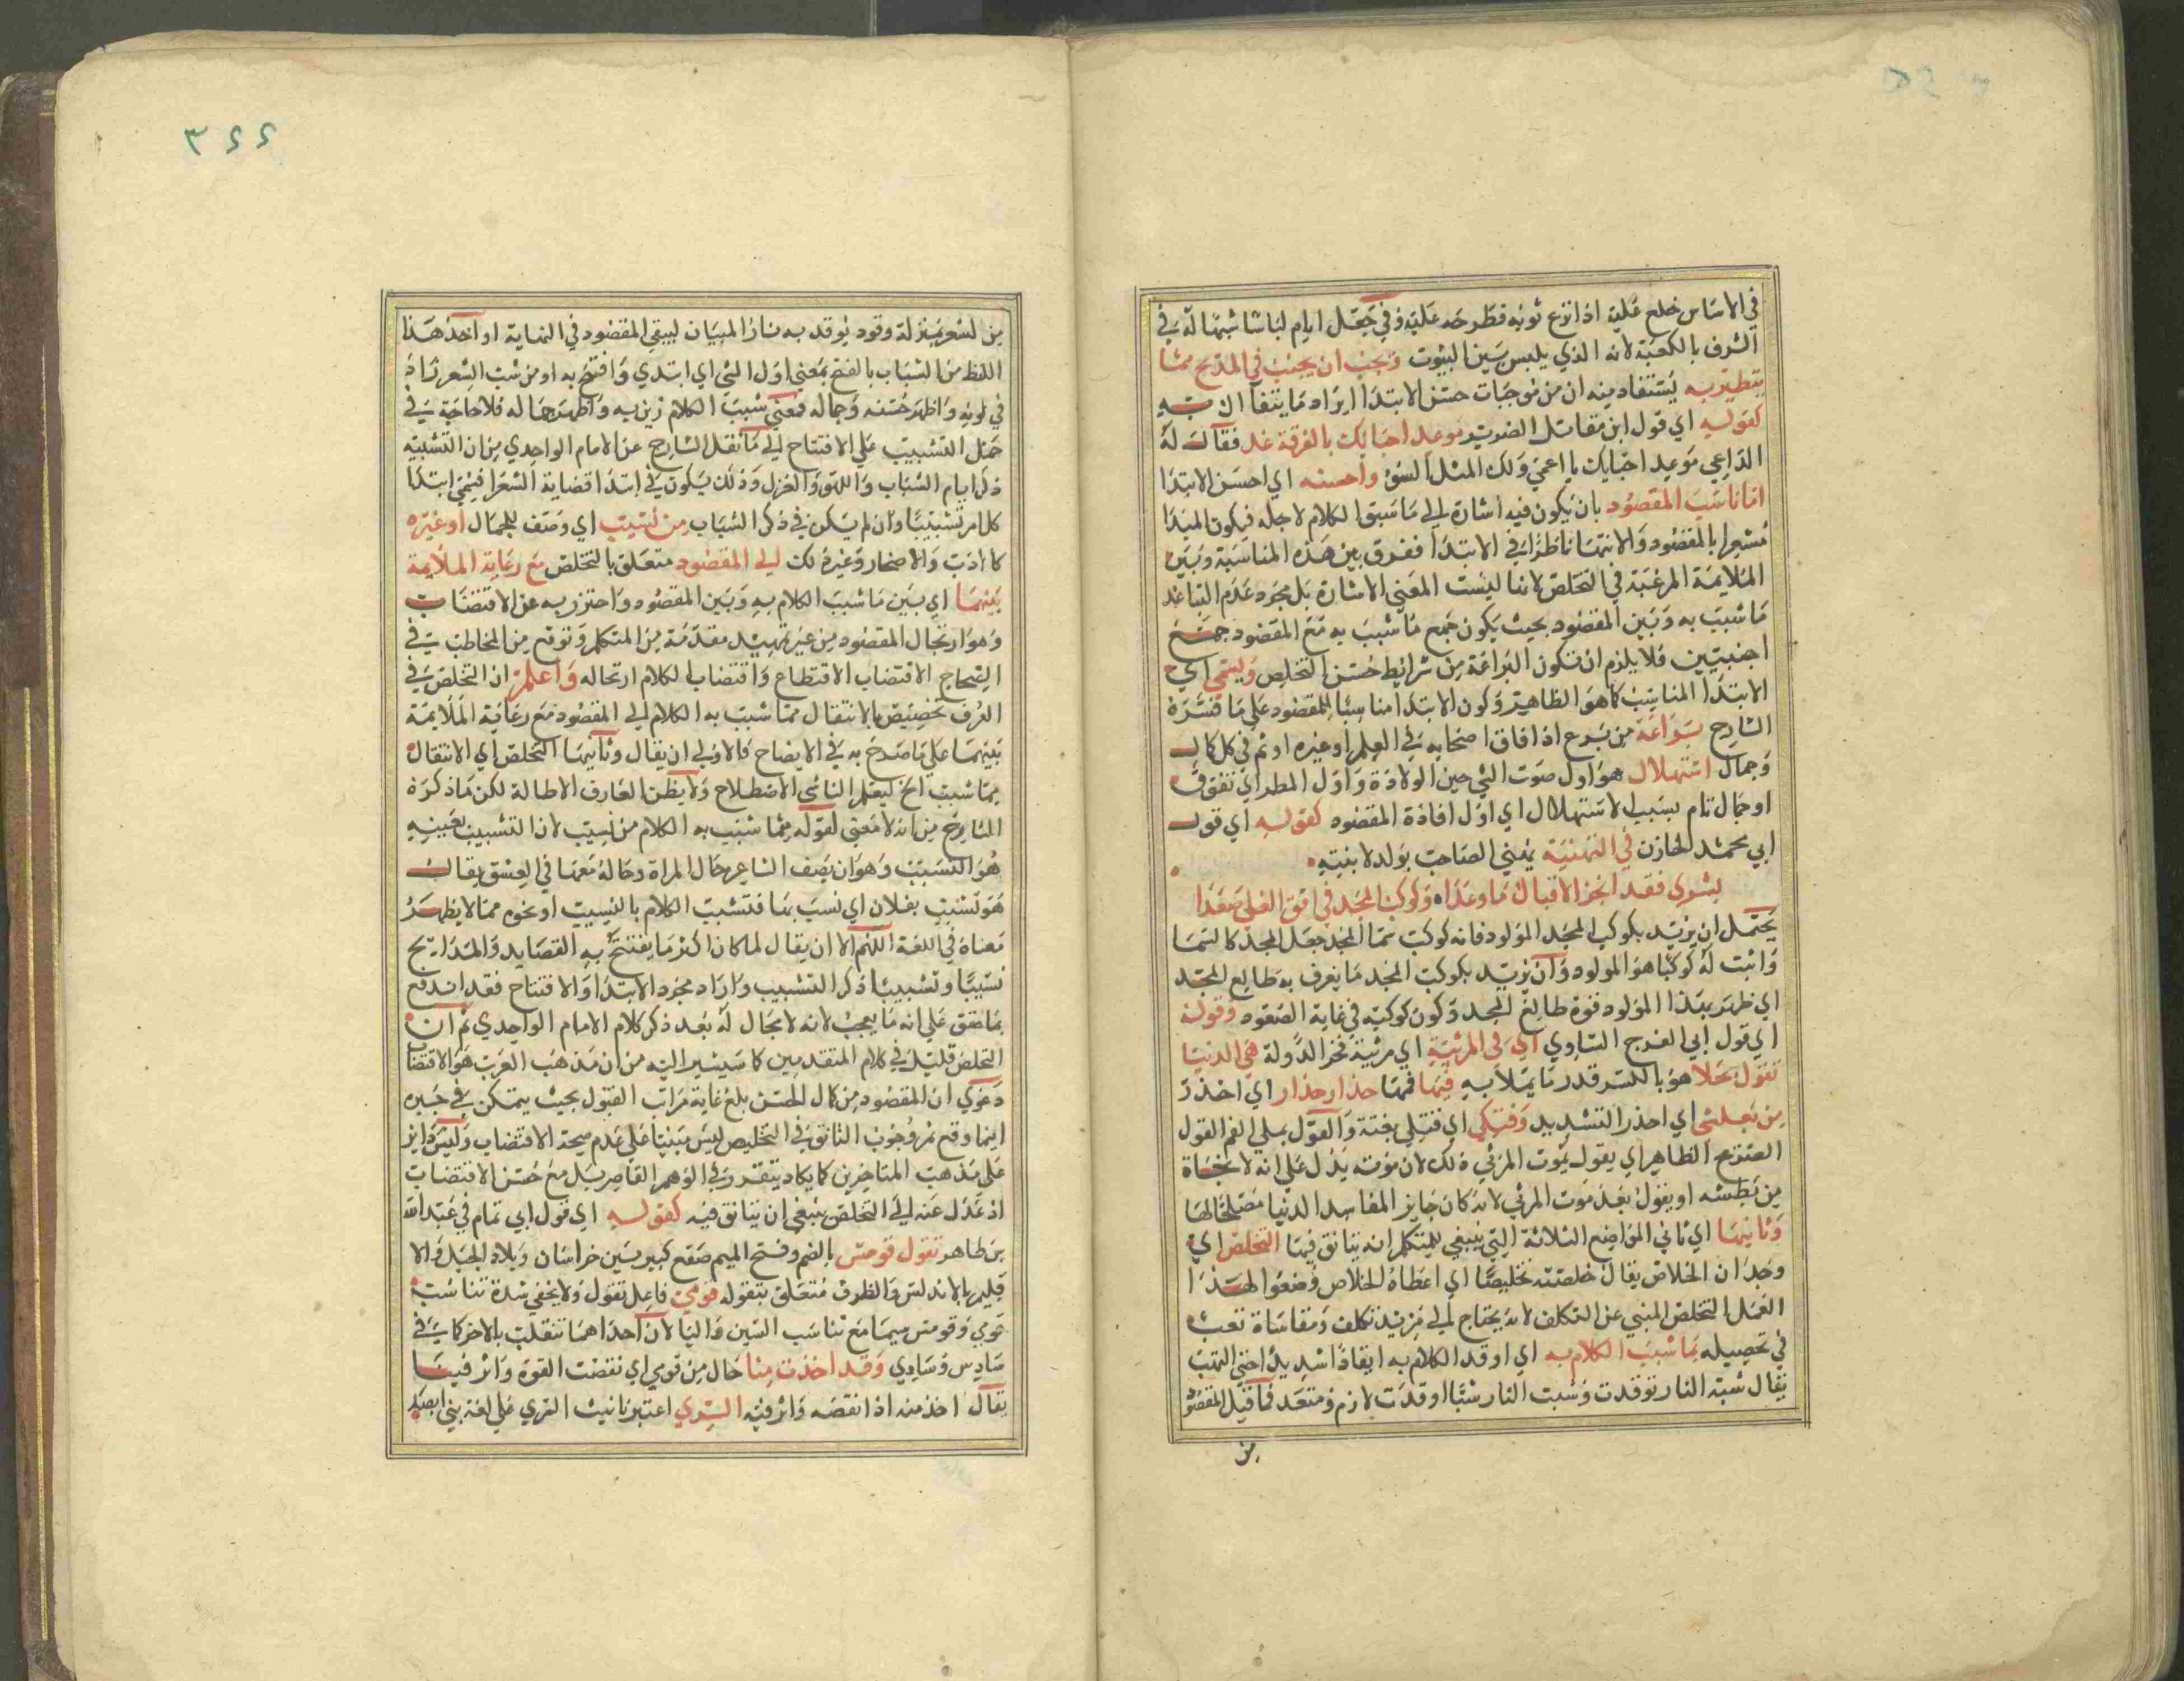 في الاساس خلع عليه اذا نزع ثوبه فطرحه عليه وفي جعل ايام لباسا شبها له في
الشرف بالكعبة لانه الذي يلبس بين البيوت ويجب ان يجتنب في المديح مما
يتطير به يستفاد منه ان من موجبات حسن الابتدا ايراد ما يتفاءل به
كقوله اي قول ابن مقاتل الضرير موعد احبابك بالفرقة غد فقال له
الداعي موعد احبابك يا اعمى ولك المثل السوء واحسنه اي احسن الابتدا
ما ناسب المقصود بان يكون فيه اشارة الي ما سبق الكلام لاجله فيكون المبدا
مشعرا بالمقصود والانتها ناظرا في الابتدا ففرق بين هذه المناسبة وبين
الملايمة المرغبة في التخلص لانها ليست المعني الاشارة بل مجرد عدم التباعد
ما شبب به وبين المقصود بحيث يكون جمع ما شبب به مع المقصود جمع
اجنبيين فلا يلزم ان تكون البراعة من شرايط حسن التخلص ويسمي اي
الابتدا المناسب كما هو الظاهر وكون الابتدا مناسبا للمقصود علي ما فسره
الشارح براعة من برع اذا فاق اصحابه في العلم او غيره او تم في كل كمال
وجمال استهلال هو اول صوت الصبي حين الولادة واول المطر اي تفوق
او جمال تام بسبب الاستهلال اي اول افادة المقصود كقوله اي قول
ابي محمد الخازن في التهنية يهني الصاحب بولد لابنته
بشري فقد انجز الاقبال ما وعدا وكوكب المجد في افق العلي صعدا
يحتمل ان يريد بكوكب المجد المولود فانه كوكب سما المجد جعل المجد كالسما
واثبت له كوكبا هو المولود وان يريد بكوكب المجد ما يعرف به طالع المجد
اي ظهر بهذا المولود قوة طالع المجد وكون كوكبه في غاية الصعود وقوله
اي قول ابي الفرج الساوي اي في المرثية اي مرثية فخر الدولة هي الدنيا
تقول بملا هو بالكسر قدر ما يملا به فيها فمها حذار حذار اي احذر
من بطشي اي احذر التشديد وفتكي اي قتلي بغتة والقول بملي الفم القول
الصريح الظاهر اي يقول بموت المرثي ذلك لان موته يدل علي انه لا نجاة
من بطشه او يقول بعد موت المرثي لانه كان جابر المفاسد الدنيا مصلحا لها
وثانيها اي ثاني المواضع الثلاثة التي ينبغي للمتكلم ان يتانق فيها التخلص اي
وجدان الخلاص يقال خلصته تخليصا اي اعطاه الخلاص وضعوا لهذا
العمل التخلص المنبي عن التكلف لانه يحتاج الي مزيد تكلف ومقاساة تعب
في تحصيله مما شبب الكلام به اي اوقد الكلام به ايقادا شديدا حتي التهب
يقال شبت النار توقدت وشببت النار شبا اوقدت لازم ومتعد فما قبل المقصود
من
٣٤٤
من لشعر بمنزلة وقود يوقد به نار البيان ليبقي المقصود في النهاية او اخذ هذا
اللفظ من الشباب بالفتح بمعني اول الشي اي ابتدي وافتتح به او من شب الشعر زاد
في لونه واظهر حسنه وجماله فمعني شبب الكلام زين به واظهر جماله فلا حاجة في
حمل التشبيب علي الافتتاح الي ما نقل الشارح عن الامام الواحدي من ان التشبيب
ذكر ايام الشباب واللهو والغزل وذلك يكون في ابتدا قصايد الشعر فيسمي ابتدا
كل امر تشبيبا وان لم يكن في ذكر الشباب من نسيب اي وصف للجمال او غيره
كالادب والافتخار وغير ذلك الي المقصود متعلق بالتخلص مع رعاية الملايمة
بينهما اي بين ما شبب الكلام به وبين المقصود واحترز به عن الاقتضاب
وهو ارتجال المقصود من غير تمهيد مقدمة من المتكلم وتوقع من المخاطب في
الصحاح الاقتضاب الاقتطاع واقتضاب الكلام ارتجاله واعلم ان التخلص في
العرف تخصيص بالانتقال مما شبب به الكلام الي المقصود مع رعاية الملايمة
بينهما علي ما صرح به في الايضاح فالاولي ان يقال وثانيها التخلص اي الانتقال
مما شبب الخ ليعلم الناشي الاصطلاح ولا يظن العارف الاطالة لكن ما ذكره
الشارح من انه لا معني لقوله مما شبب به الكلام من نسيب لان التشبيب بعينه
هو النسيب وهو ان يصف الشاعر حال المراة وحاله معها في العشق يقال
هو نسيب بفلان اي نسب بها فتشبيب الكلام بالنسيب او نحوه مما لا يظهر
معناه في اللغة اللهم الا ان يقال لما كان اكثر ما يفتتح به القصايد والمدايح
نسيبا وتشبيبا ذكر التشبيب واراد مجرد الابتدا والافتتاح فقد اندفع
بما حقق علي انه ما يعجب لانه لا مجال له بعد ذكر كلام الامام الواحدي ثم ان
التخلص قليل في كلام المتقدمين كما سيشير اليه من ان مذهب العرب هو الاقتضاب
دعوي ان المقصود من كمال الحسن بلغ غاية مراتب القبول بحيث يتمكن في حيزه
اينما وقع ثم وجوب التانق في التخليص ليس مبنيا علي عدم صحة الاقتضاب وليس داير
علي مذهب المتاخرين كما يكاد يتقرر في الوهم القاصر بل مع حسن الاقتضاب
اذ عدل عنه الي التخلص ينبغي ان يتانق فيه كقوله اي قول ابي تمام في عبد الله
بن طاهر تقول قومس بالضم وفتح الميم صقع كبير بين خراسان وبلاد الجبل والا
قليم بالاندلس والظرف متعلق بتقوله قومي فاعل تقول ولا يخفي شدة تناسب
قومي وقومس سيما مع تناسب السين واليا لان احداهما تنقلب بالاخر كما في
سادس وسادي وقد اخذت منا حال من قومي اي نقصت القوة واثر فينا
يقال اخذ منه اذا نقصه واثر فيه السري اعتبر تانيث السري علي لغة بني اسد